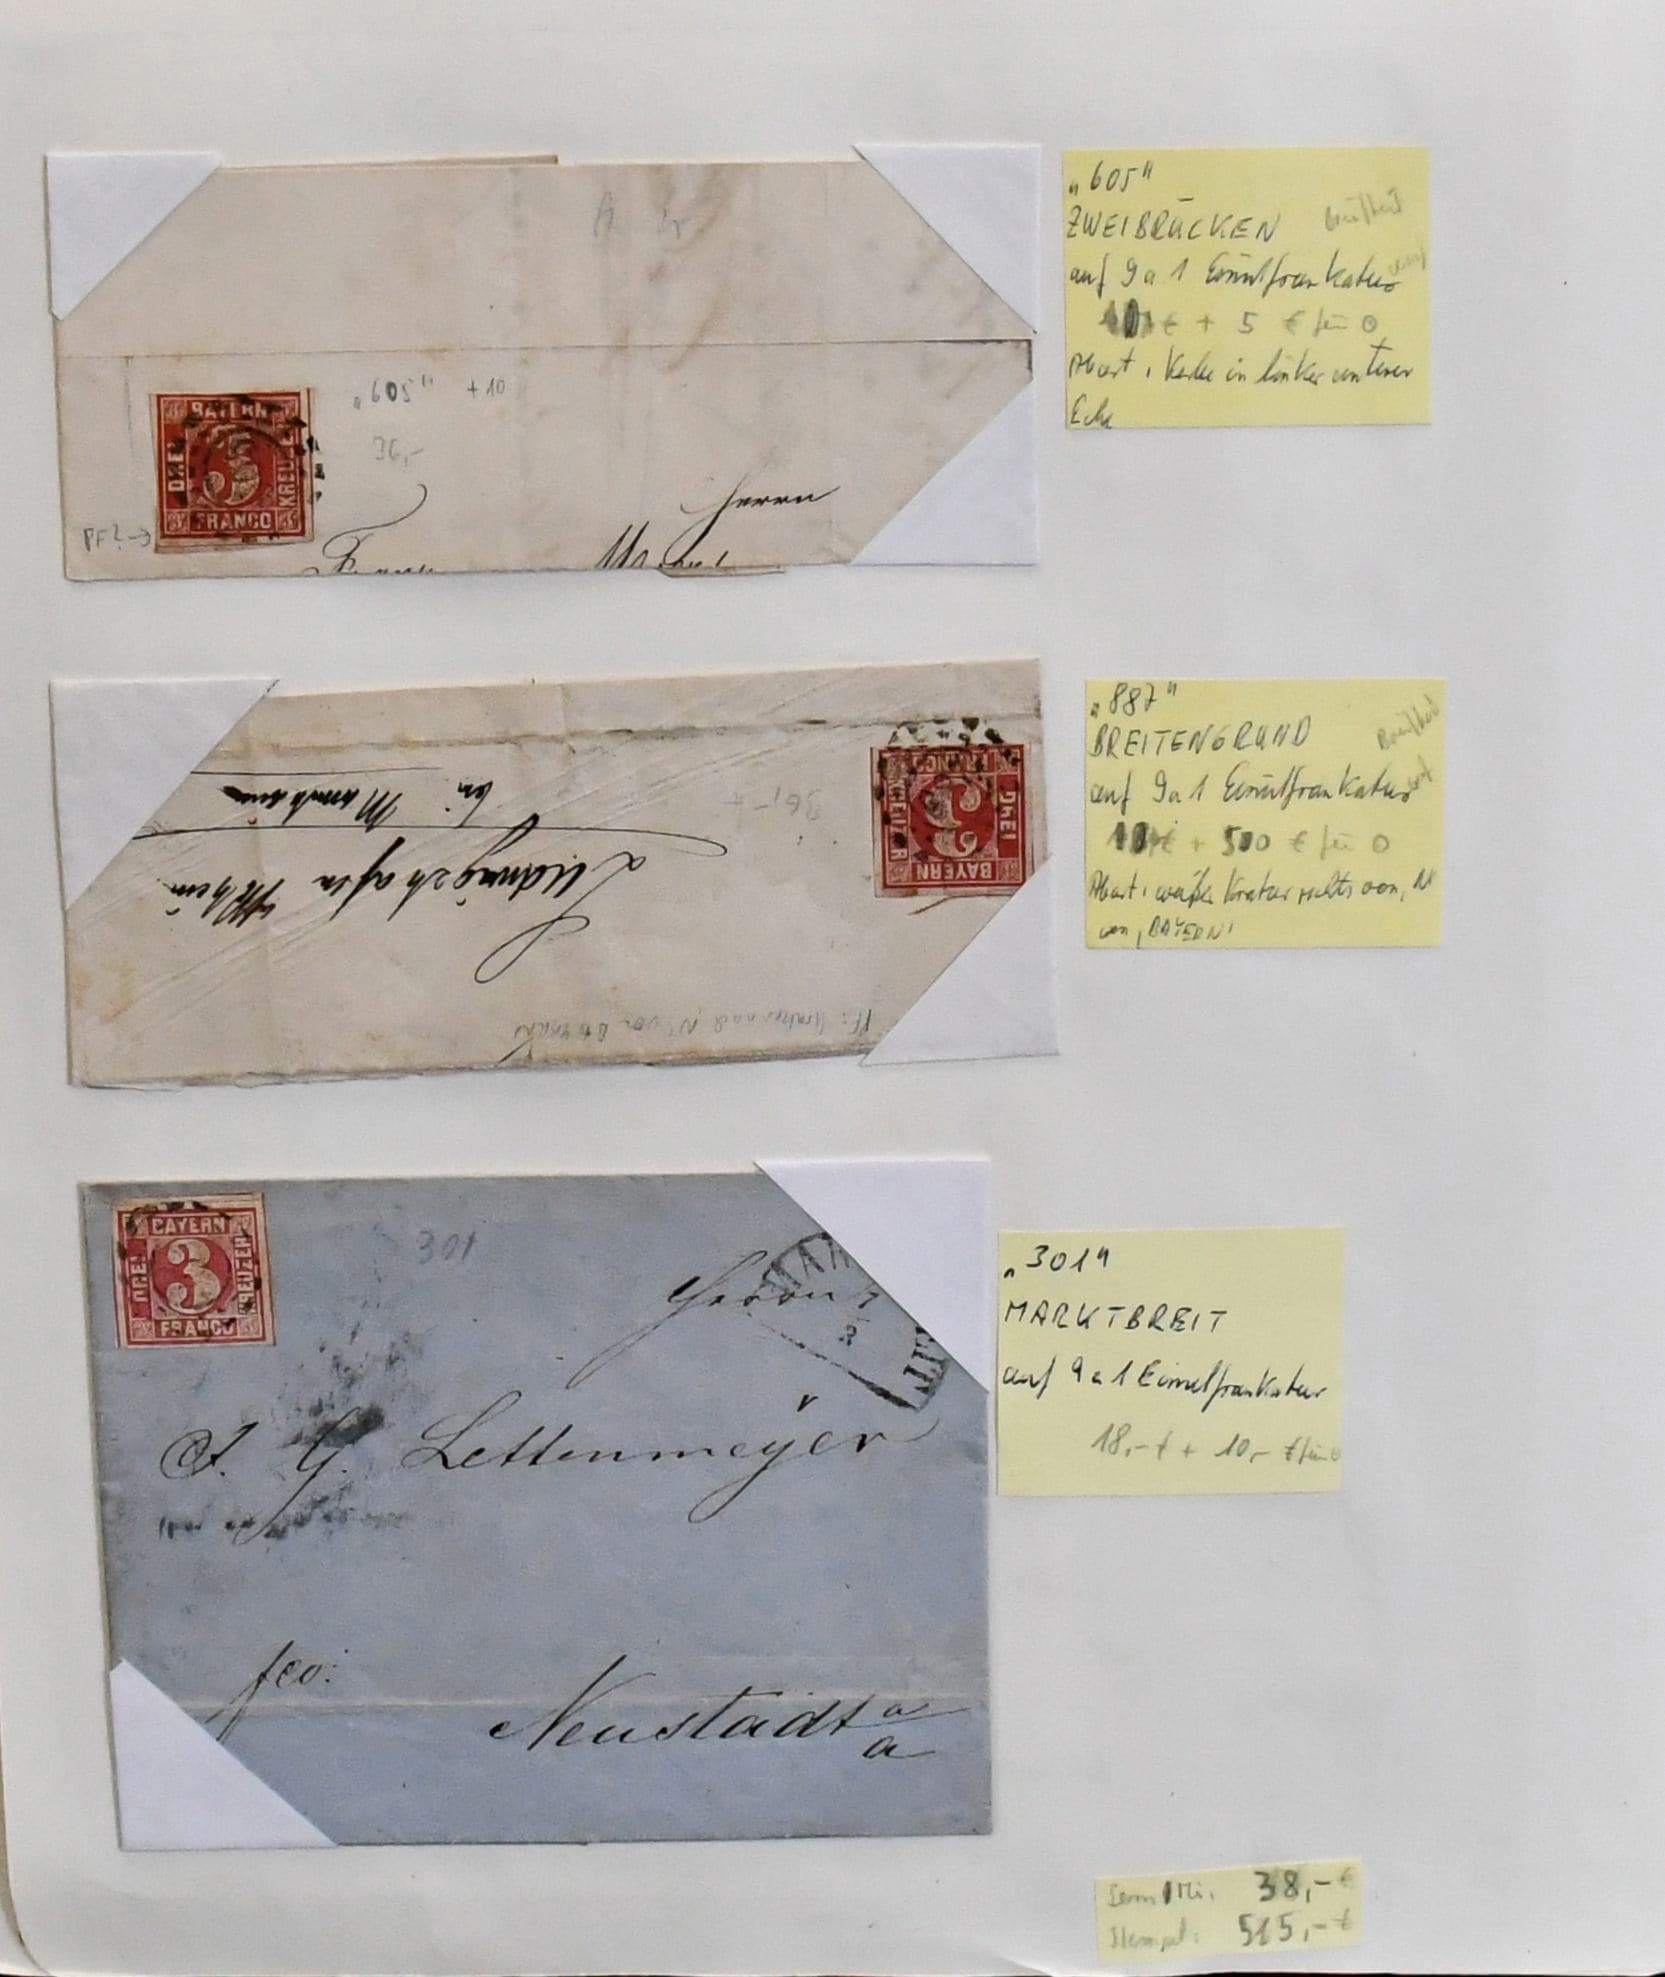 „605"
ZWEIBRÜCKEN
auf 9a 1 Einzelfrankatur
10,- € + 5 € für O
Abart: Kerbe in linker unterer
Ecke
BAYERN
DREI
3
KREUZER
FRANCO
„605" +10
36,-
PF? →
Herrn
„887"
BREITENGRUND
auf 9a 1 Einzelfrankatur
10,- € + 500 € für O
Abart: weißer Kratzer rechts von „N"
von „BAYERN"
BAYERN
DREI
3
FRANCO
36,-
Ludwigshafen Rhein
bei Mannheim
„301"
MARKTBREIT
auf 9a 1 Einzelfrankatur
18,- € + 10,- € für O
BAYERN
DREI
3
KREUZER
FRANCO
301
Herrn
J. G. Lettenmeyer
fco:
Neustadt a/a
38,- €
Stempel: 515,- €